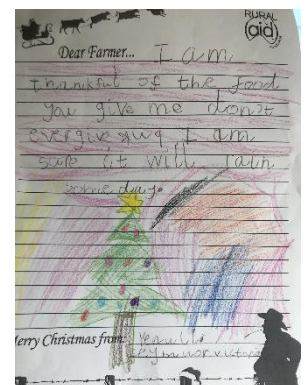 RURAL
aid
Dear Farmer... I am
thankful of the food
you give me don't
ever give up I am
sure it will rain
some day.
Merry Christmas from: